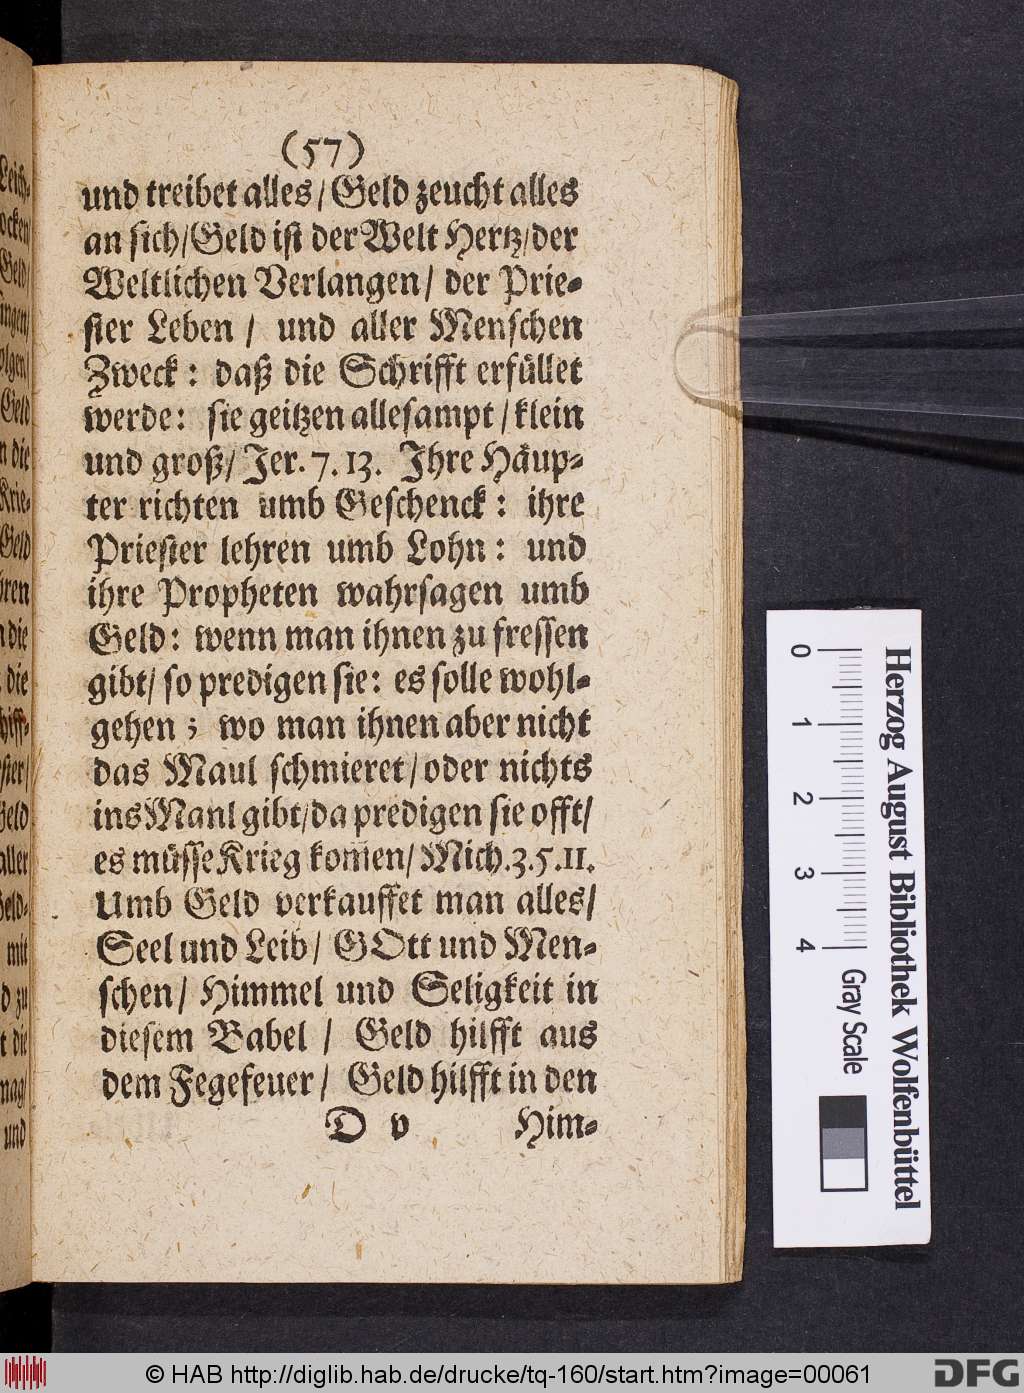 (57)
und treibet alles/ Geld zeucht alles
an sich/ Geld ist der Welt Hertz/ der
Weltlichen Verlangen/ der Prie-
ster Leben / und aller Menschen
Zweck: daß die Schrifft erfüllet
werde: sie geitzen allesampt / klein
und groß/ Jer. 7. 13. Ihre Häup-
ter richten umb Geschenck: ihre
Priester lehren umb Lohn: und
ihre Propheten wahrsagen umb
Geld: wenn man ihnen zu fressen
gibt/ so predigen sie: es solle wohl-
gehen; wo man ihnen aber nicht
das Maul schmieret/ oder nichts
ins Manl gibt/ da predigen sie offt/
es müsse Krieg kom̄en/ Mich. 3. 5. 11.
Umb Geld verkauffet man alles/
Seel und Leib/ GOtt und Men-
schen/ Himmel und Seligkeit in
diesem Babel / Geld hilfft aus
dem Fegefeuer/ Geld hilfft in den
D v Him-
ocken/
Geld/
Geld
n die
Krie-
Geld
die
die
Geld
aller
Geld-
mit
zu
die
und
0
1
2
3
4
Gray Scale
Herzog August Bibliothek Wolfenbüttel
© HAB http://diglib.hab.de/drucke/tq-160/start.htm?image=00061
DFG